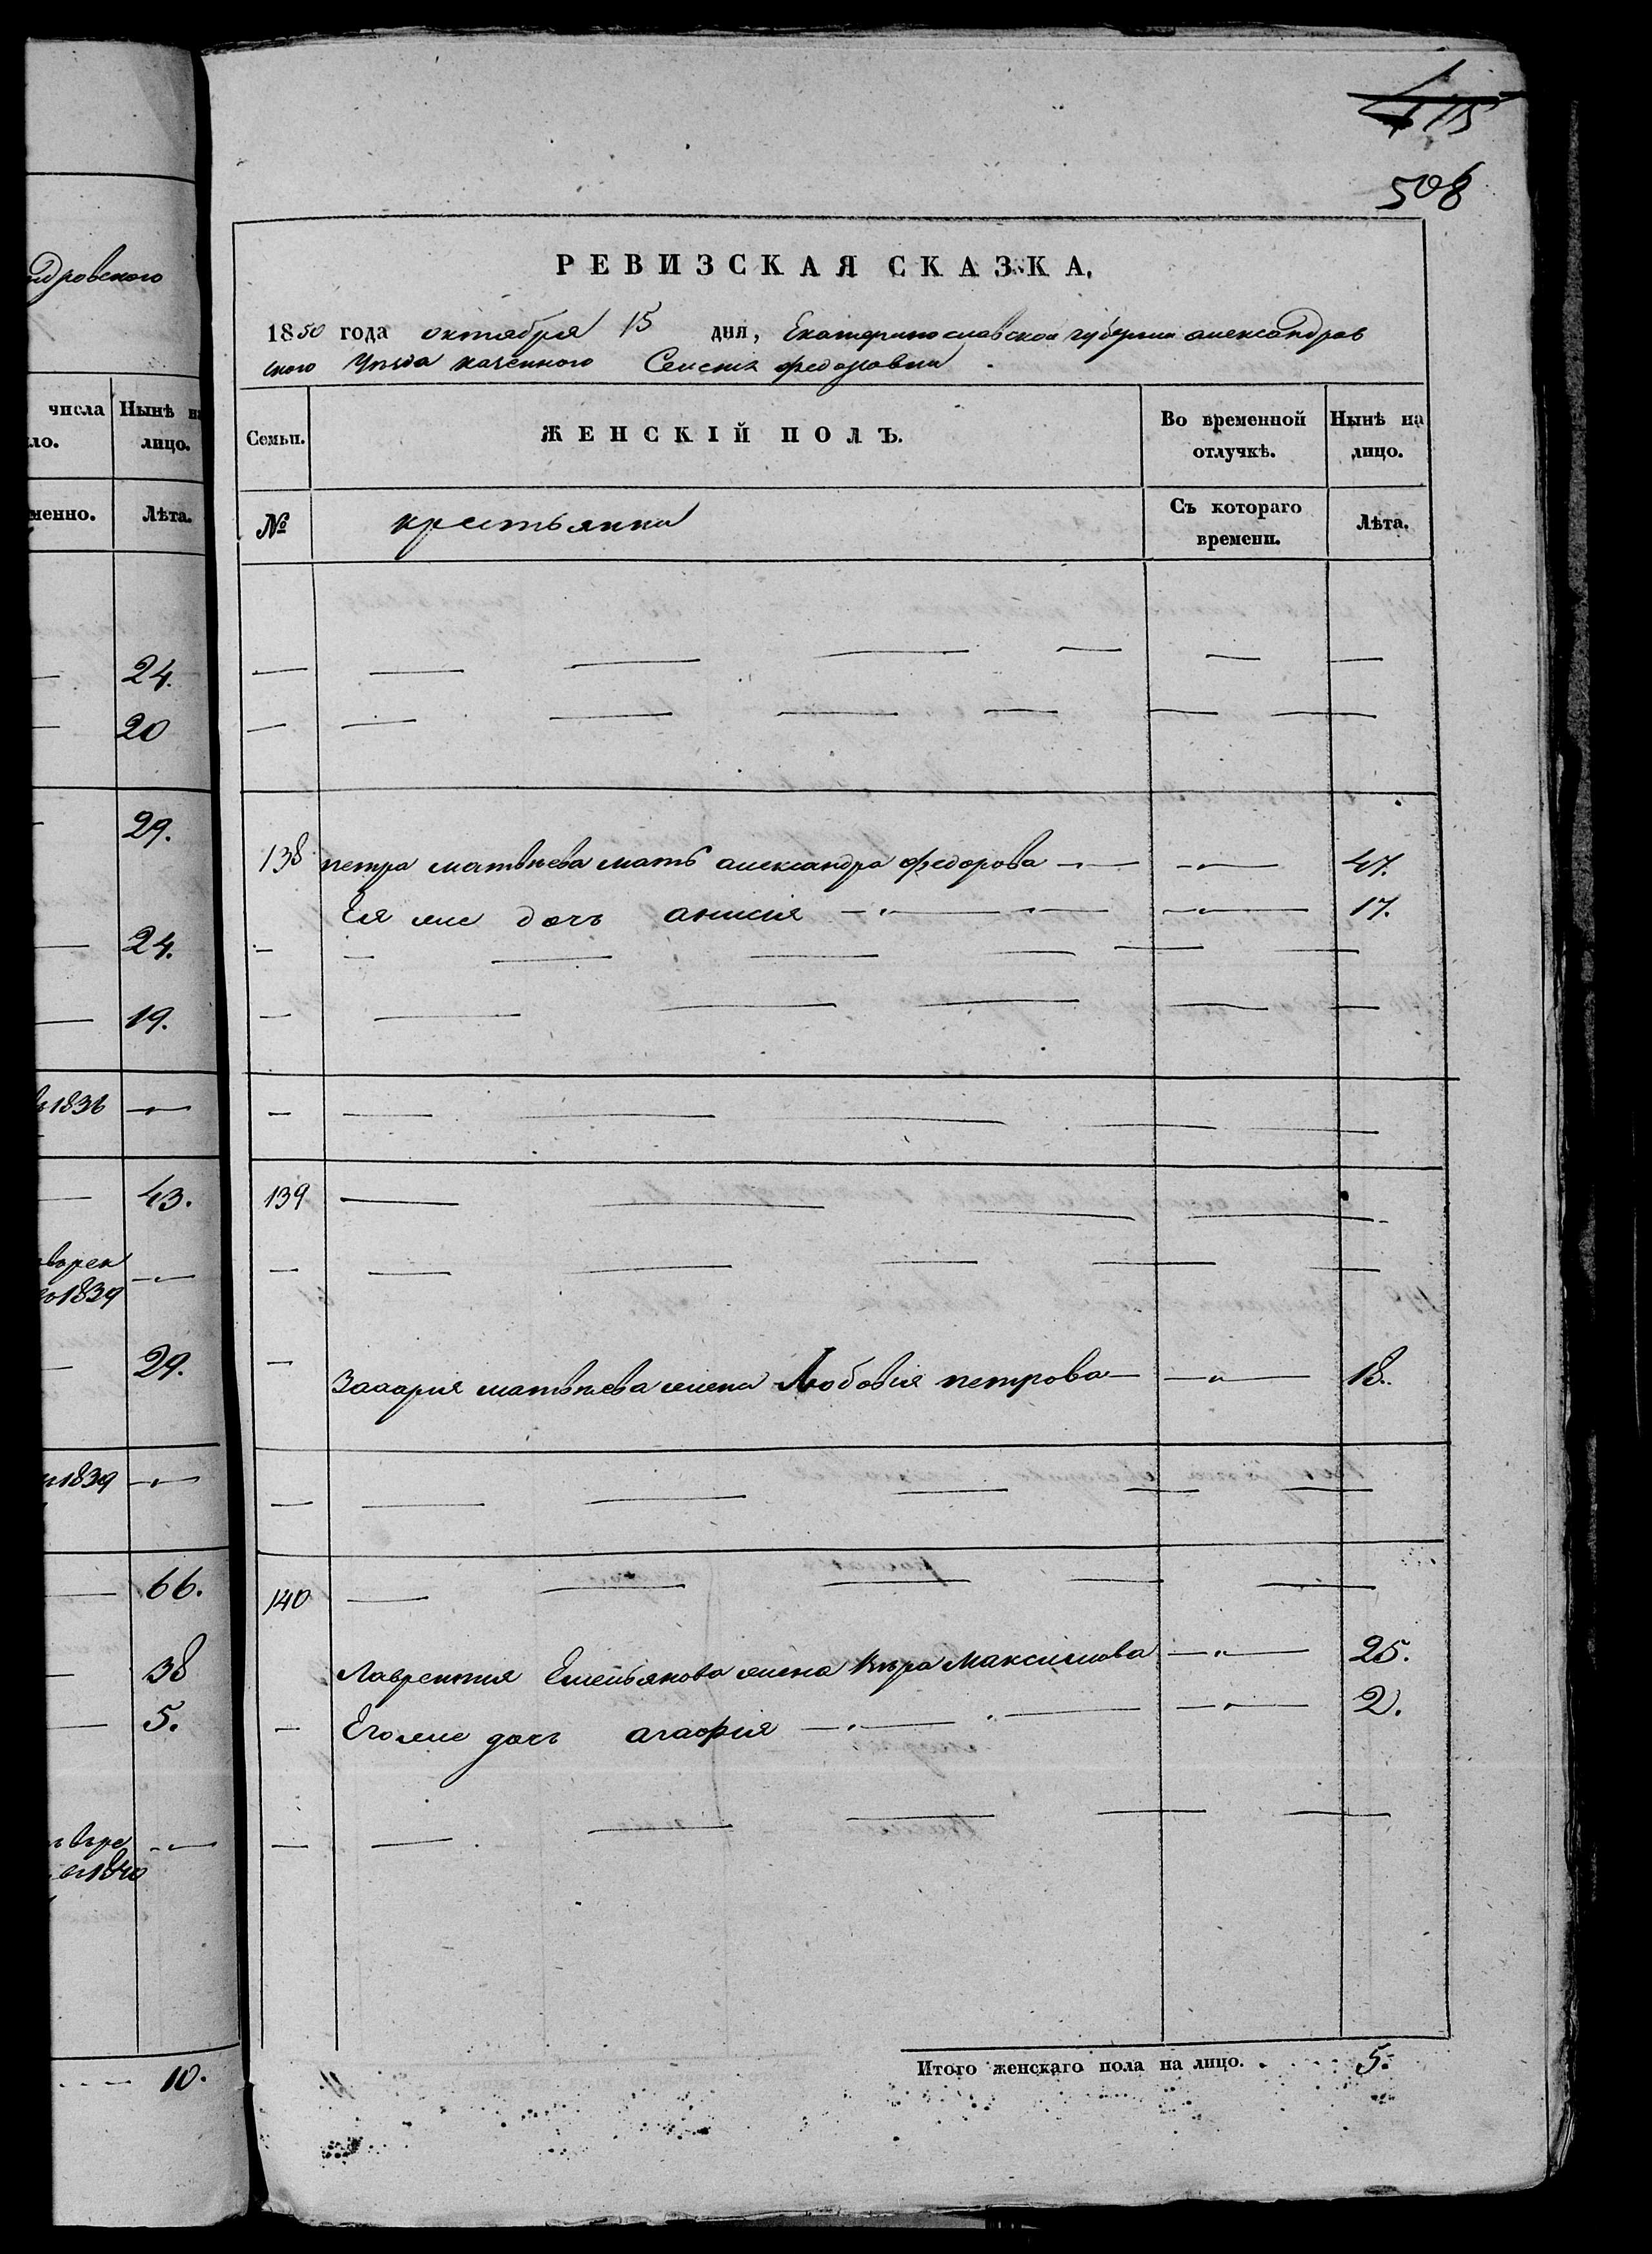 ндровскаго
числа Нынѣ на
ло. лицо.
менно. Лѣта.
24.
20
29.
24.
19.
1836
43.
1839
29.
1839
66.
38
5.
1840
10.
415
508
РЕВИЗСКАЯ СКАЗКА,
1850 года октября 15 дня, Екатеринославской губерніи александров
ского Уѣзда казенного Селенія федоровки
Семьи. ЖЕНСКІЙ ПОЛЪ. Во временной отлучкѣ. Нынѣ на лицо.
№ крестьянки Съ котораго времени. Лѣта.
138 петра матвѣева мать александра федорова 47.
Ея же дочь анисія 17.
139
Захарія матвѣева жена Любовія петрова 18.
140
Лаврентія Емельянова жена Вѣра Максимова 25.
Его же дочь агафія 2.
Итого женскаго пола на лицо. 5.